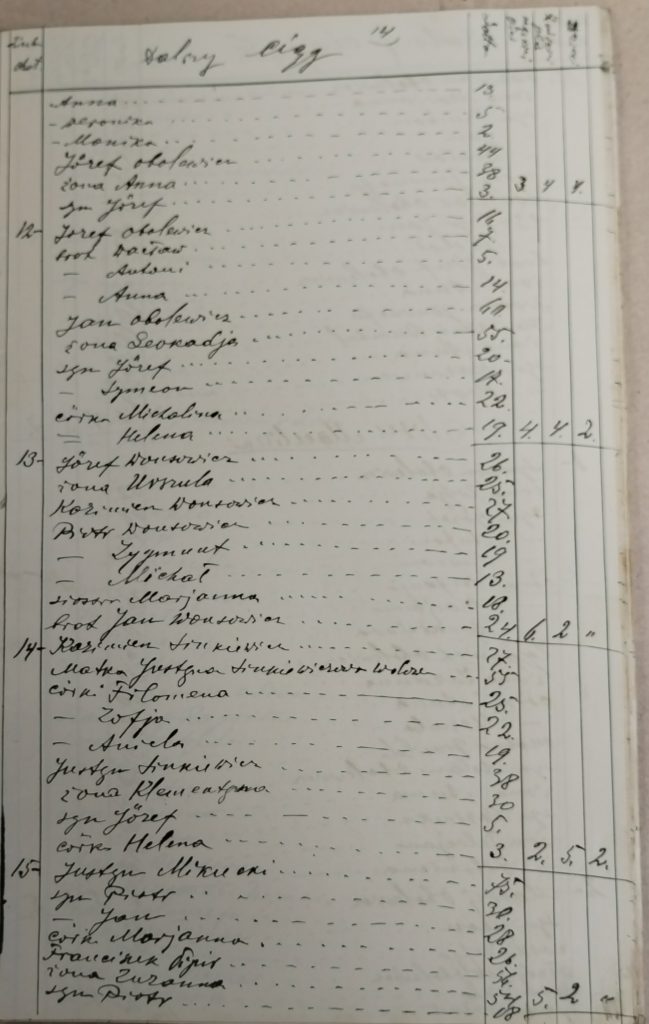 14
Dalszy ciąg
Lata
Anna 13
- Weronika 5
- Monika 2
Józef Obolewicz 44
żona Anna 38
syn Józef 3. 3 4 4.
12- Józef Obolewicz 16
brat Wacław 7
- Antoni 5.
- Anna 14
Jan Obolewicz 61
żona Leokadja 55.
syn Józef 20
- Symeon 17.
córka Michalina 22
= Helena 19. 4. 4. 2
13- Józef Wonsowicz 26.
żona Urszula 25.
Kazimierz Wonsowicz 27
Piotr Wonsowicz 20.
- Zygmunt 19
- Michał 13.
siostra Marjanna 18.
brat Jan Wonsowicz 24. 6. 2 "
14- Kazimierz Sinkiewicz 27.
Matka Justyna Sinkiewiczowa wdowa 55
córki Filomena 25.
- Zofja 22.
- Aniela 19.
Justyn Sinkiewicz 38
żona Klementyna 30
syn Józef 5.
córka Helena 3. 2. 5. 2.
15- Justyn Mikucki 75.
syn Piotr 30.
- Jan 28
córk Marjanna 26.
Francizek
żona Zuzanna
syn Piotr 18 5. 2 "